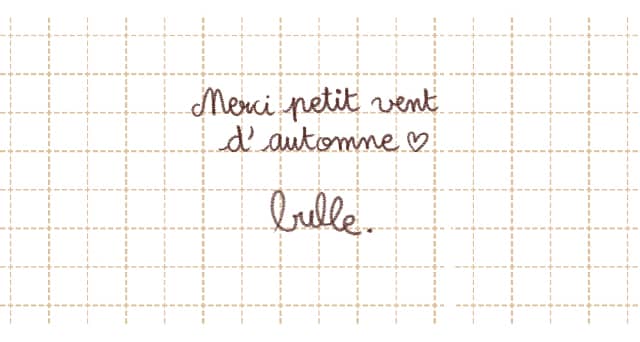 Merci petit vent
d'automne ♡
bulle.